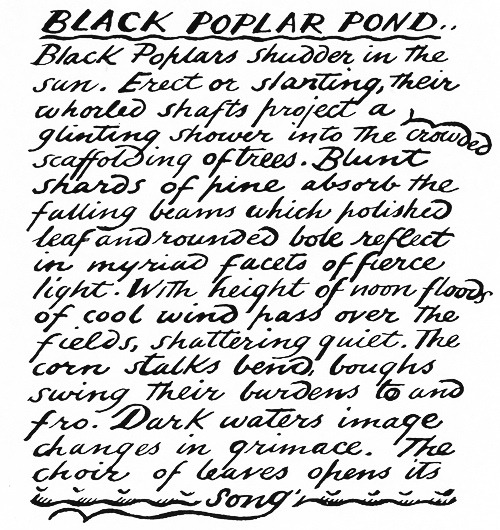 BLACK POPLAR POND..
Black Poplars shudder in the
sun. Erect or slanting, their
whorled shafts project a
glinting shower into the crowded
scaffolding of trees. Blunt
shards of pine absorb the
falling beams which polished
leaf and rounded bole reflect
in myriad facets of fierce
light. With height of noon floods
of cool wind pass over the
fields, shattering quiet. The
corn stalks bend, boughs
swing their burdens to and
fro. Dark waters image
changes in grimace. The
choir of leaves opens its
song.